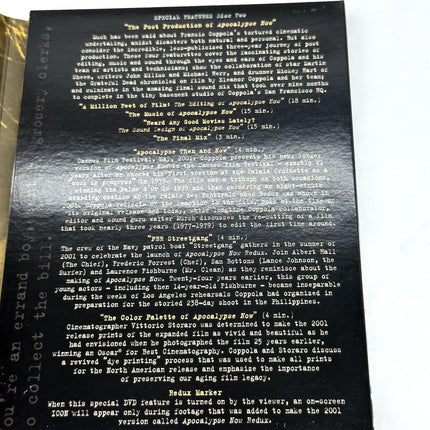 SPECIAL FEATURES Disc Two
"The Post Production of Apocalypse Now"
Much has been said about Francis Coppola's tortured cinematic
undertaking, amidst disasters both natural and personal. But also
consider the incredible, less-publicized three-year journey of post
production. These four featurettes cover the fascinating stories of
editing, music and sound through the eyes and ears of Coppola and his
team of artists and technicians; show the collaboration of star Martin
Sheen, writers John Milius and Michael Herr, and drummer Mickey Hart of
the Grateful Dead chronicled on film by Eleanor Coppola and her team;
and culminate in the amazing final sound mix that took over nine months
to complete in the tiny basement studio of Coppola's San Francisco HQ.
"A Million Feet of Film: The Editing of Apocalypse Now" (18 min.)
"The Music of Apocalypse Now" (15 min.)
"Heard Any Good Movies Lately?
The Sound Design of Apocalypse Now" (15 min.)
"The Final Mix" (3 min.)
"Apocalypse Then and Now" (4 min.)
Cannes Film Festival, May, 2001: Coppola presents his new longer
version of Apocalypse Now to the Cannes Film Festival exactly 21
years after he showed his first version at the Palais Croisette as a
work in progress in 1979. The film earned on both occasions,
winning the Palme d'Or in 1979 and then garnering an eight-minute
standing ovation at the Palais des Festivals when Redux was shown in
2001. Coppola reflects on the reaction to the film, both at the time of
its original release and today, while longtime Coppola collaborator,
editor and sound guru Walter Murch discusses the re-cutting of a film
that took nearly three years (1977-1979) to edit the first time around.
"PBR Streetgang" (4 min.)
The crew of the Navy patrol boat "Streetgang" gathers in the summer of
2001 to celebrate the launch of Apocalypse Now Redux. Join Albert Hall
(The Chief), Frederic Forrest (Chef), Sam Bottoms (Lance Johnson, the
Surfer) and Laurence Fishburne (Mr. Clean) as they reminisce about the
making of Apocalypse Now. Twenty-four years earlier, this group of
young actors - including then 14-year-old Fishburne - became inseparable
during the weeks of Los Angeles rehearsals Coppola had organized in
preparation for the storied 238-day shoot in the Philippines.
"The Color Palette of Apocalypse Now" (4 min.)
Cinematographer Vittorio Storaro was determined to make the 2001
release prints of the expanded film as vivid and beautiful as he
had envisioned when he photographed the film 25 years earlier,
winning an Oscar® for Best Cinematography. Coppola and Storaro discuss
a revived "dye printing" process that was used to make all prints
for the North American release and emphasize the importance
of preserving our aging film legacy.
Redux Marker
When this special DVD feature is turned on by the viewer, an on-screen
ICON will appear only during footage that was added to make the 2001
version called Apocalypse Now Redux.
ou're an errand bo
o collect the bill
grocery clerks,